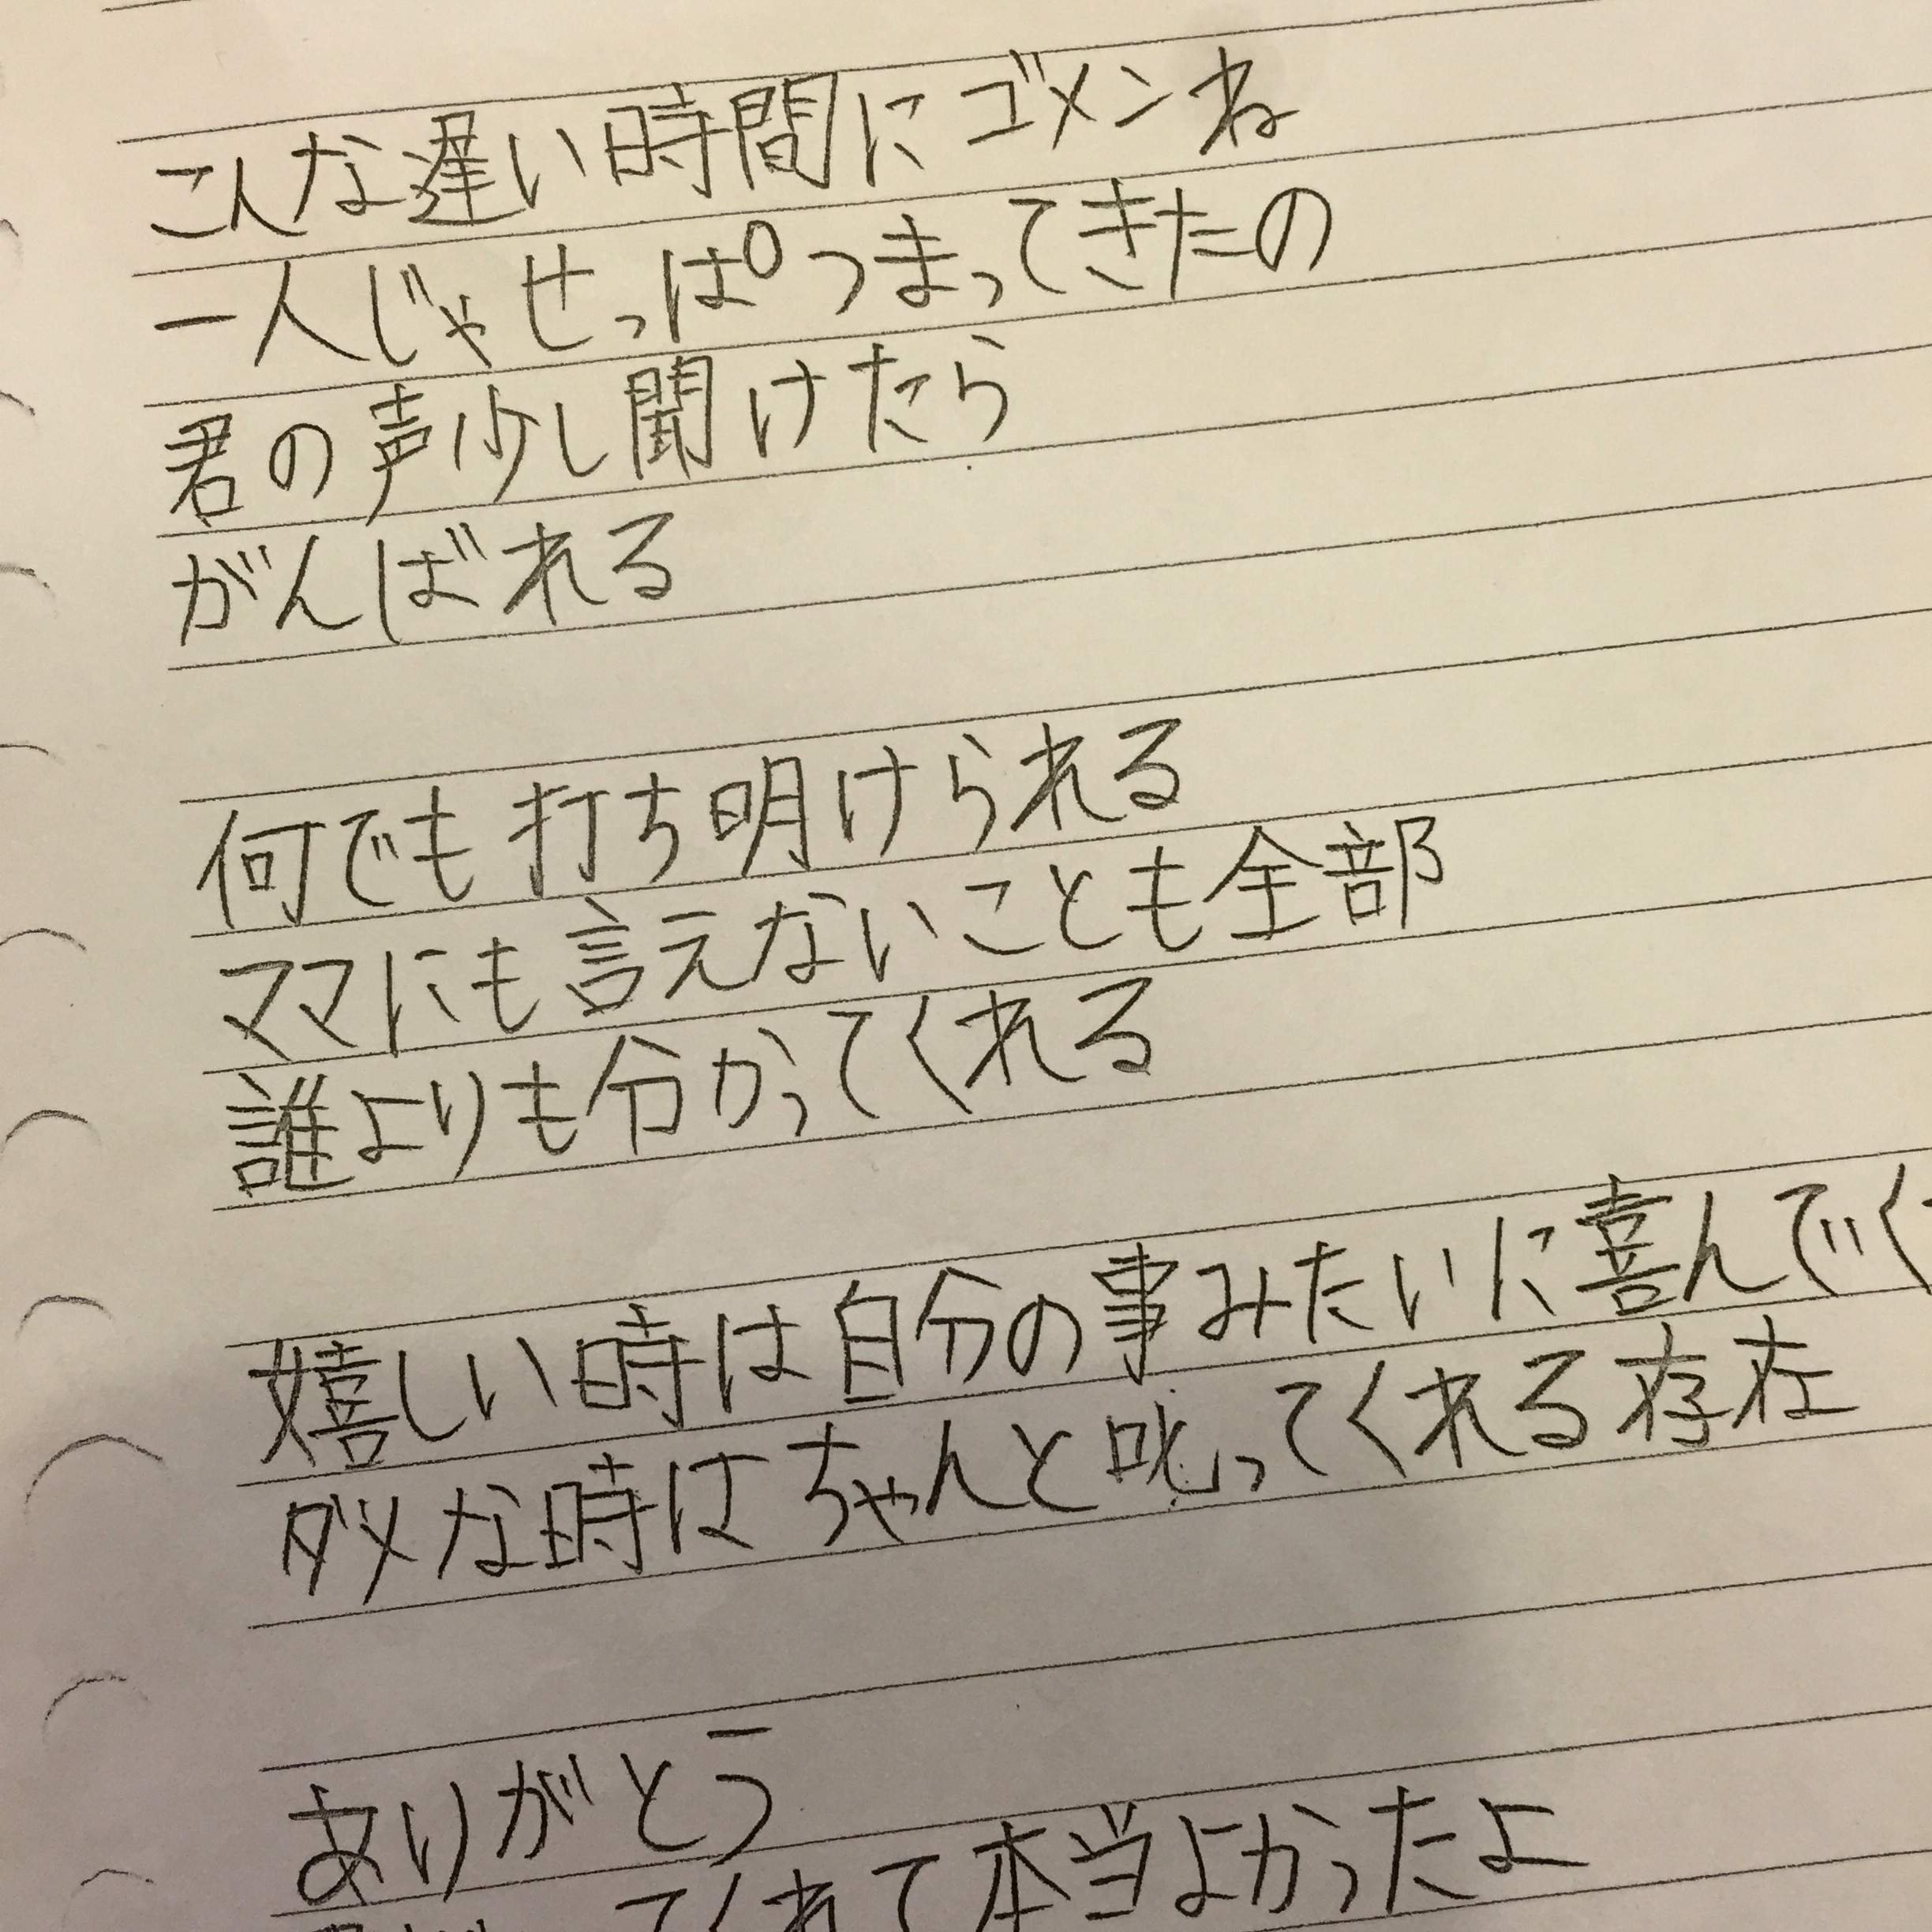 こんな遅い時間にゴメンね
一人じゃせっぱつまってきたの
君の声少し聞けたら
がんばれる
何でも打ち明けられる
ママにも言えないことも全部
誰よりも分かってくれる
嬉しい時は自分の事みたいに喜んでく
ダメな時はちゃんと叱ってくれる存在
ありがとう
てくれて本当よかったよ